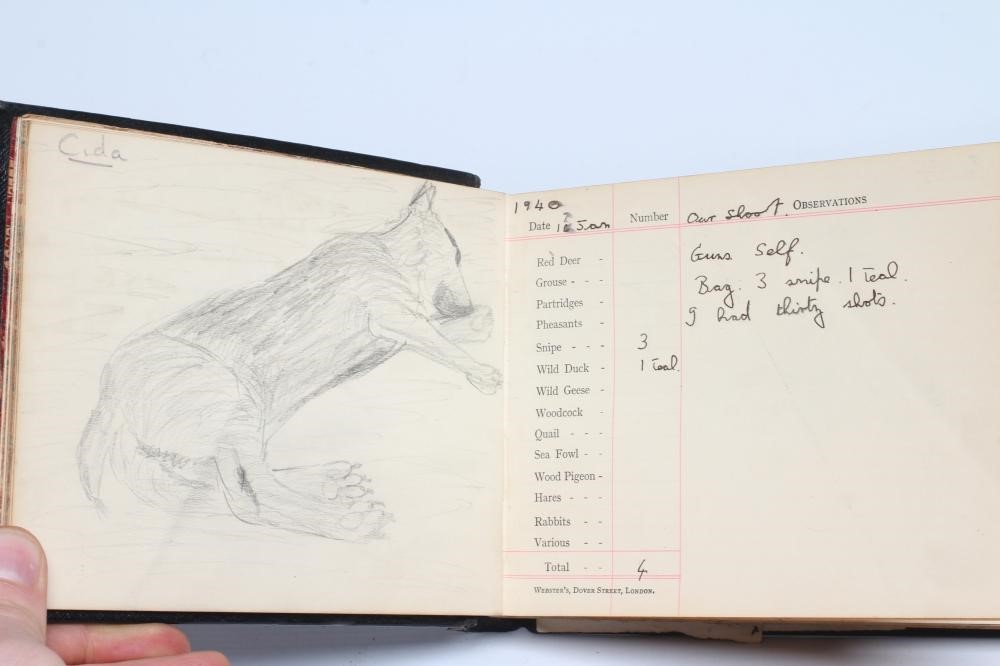 Cida
1940
Date Jan Number Our shoot. OBSERVATIONS
Guns Self.
Red Deer -
Bag. 3 snipe. 1 Teal.
Grouse - - -
I had thirty shots.
Partridges -
Pheasants -
Snipe - - - 3
Wild Duck - 1 Teal.
Wild Geese -
Woodcock -
Quail - - -
Sea Fowl - -
Wood Pigeon -
Hares - - -
Rabbits - -
Various - -
Total - - 4
WEBSTER'S, DOVER STREET, LONDON.